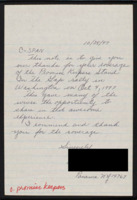 10/30/97
C-SPAN
This note is to give you
our thanks for your coverage
of the Promise Keepers Stand
in the Gap Rally in
Washington on Oct 4, 1997
This gave many of the
the opportunity to
share in that awesome
experience.
I commend and thank
you for the coverage.
Sincerely
Promise Keepers